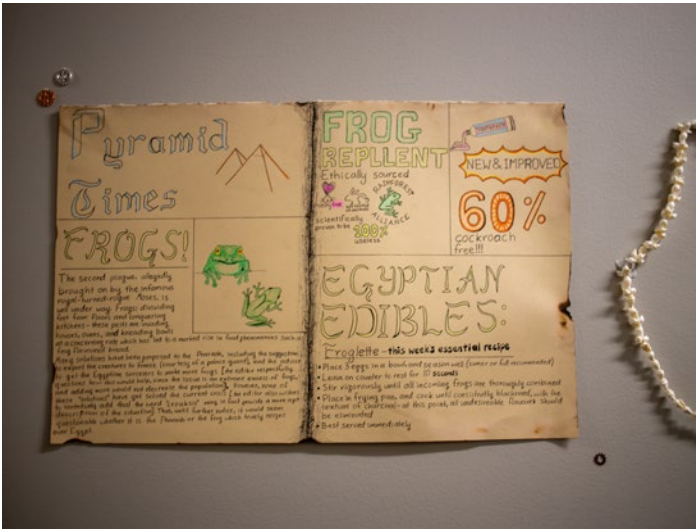 Pyramid
Times
FROGS!
The second plague, allegedly
brought on by the infamous
royal-turned-rogue Moses, is
well under way. Frogs dividing
feet from floors and conquering
kitchens - these pests are invading
houses, ovens, and kneading bowls
at a concerning rate which has led to a marked rise in food phenomenons such as
frog flavoured bread.
Many solutions have been proposed to the Pharaoh, including the suggestion
to export the creatures to France (courtesy of a palace guard), and the notion
to get the Egyptian sorcerers to make more frogs [the editor respectfully
questions how this would help, since the issue is an extreme excess of frogs,
and adding more would not decrease the population]. However, none of
these "solutions" have yet solved the current crisis [the editor also wishes
to tentatively add that the word "croakus" may in fact provide a more apt
description of the situation]. Thus, until further notice, it would seem
questionable whether it is the Pharaoh or the frog which truly reigns
over Egypt.
FROG
REPLLENT
Ethically sourced
RAINFOREST
ALLIANCE
scientifically
proven to be 100%
useless
NEW & IMPROVED
60%
cockroach
free!!!
EGYPTIAN
EDIBLES:
Froglette - this weeks essential recipe
• Place 3 eggs in a bowl and season well (cumin or full recommended)
• Leave on counter to rest for 10 seconds
• Stir vigorously until all incoming frogs are thoroughly combined
• Place in frying pan, and cook until consistently blackened, with the
texture of charcoal - at this point, all undesirable flavours should
be eliminated
• Best served immediately